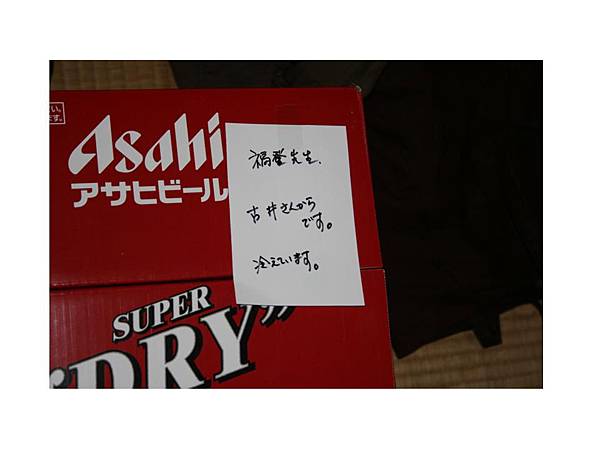 Asahi
アサヒビール
禍登先生、
古井さんから
です。
冷えています。
SUPER
"DRY"